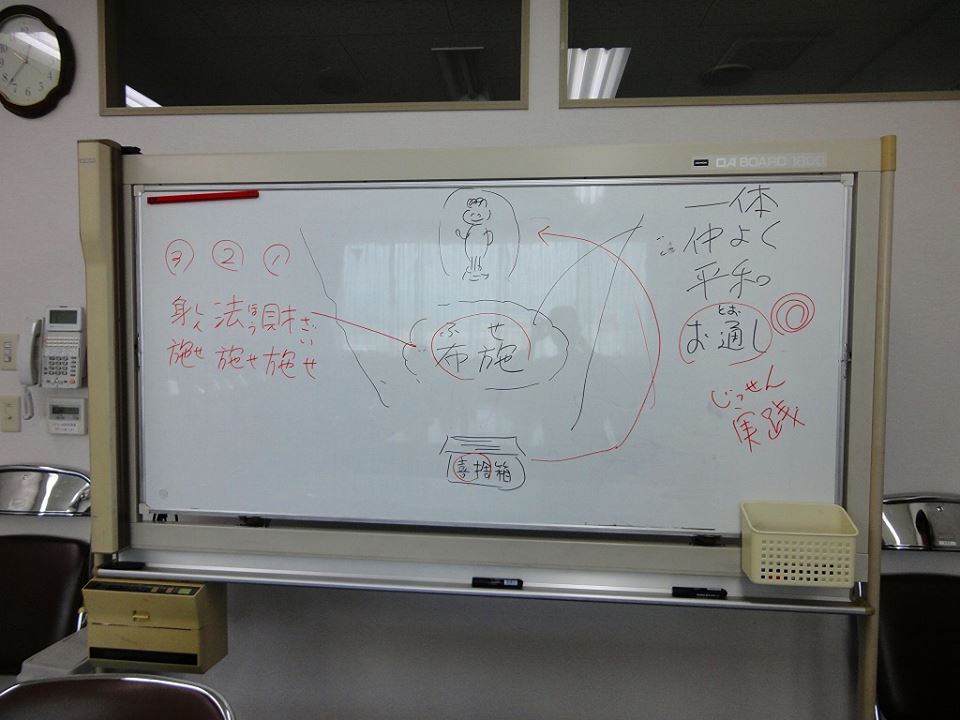 OA BOARD 1800
一体
仲よく
平和
とお
お通し
じっせん
実践
ふせ
布施
喜捨箱
① ② ③
財施 ざいせ
法施 ほうせ
身施 しんせ